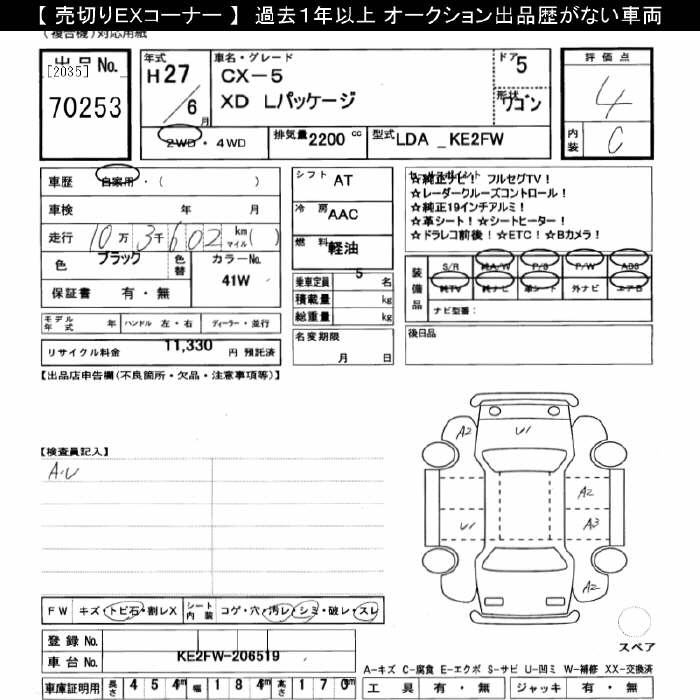 【 売切りEXコーナー 】 過去1年以上 オークション出品歴がない車両
(複合機)対応用紙
出品No.
[2035]
70253
年式
H27
/6月
車名・グレード
CX-5
XD Lパッケージ
ドア
5
形状
ワゴン
2WD・4WD
排気量 2200 cc
型式 LDA _KE2FW
評価点
4
内装
C
車歴 自家用・( )
車検 年 月
走行 10万3千602 km マイル( )
色 ブラック 色替 カラーNo. 41W
保証書 有・無
モデル年式 年 ハンドル 左・右 ディーラー・並行
リサイクル料金 11,330 円 預託済
シフト AT
冷房 AAC
燃料 軽油
乗車定員 5 名
積載量 kg
総重量 kg
名変期限
月 日
セールスポイント
☆純正ナビ! フルセグTV!
☆レーダークルーズコントロール!
☆純正19インチアルミ!
☆革シート! ☆シートヒーター!
☆ドラレコ前後! ☆ETC! ☆Bカメラ!
装備品
S/R 純A/W P/S P/W ABS
純TV 純ナビ 革シート 外ナビ エアB
ナビ型番:
後日品
【出品店申告欄(不良箇所・欠品・注意事項等)】
【検査員記入】
A.U
A2
U1
A2
U1
A3
A2
スペア
FW キズ・トビ石・割レX シート内装 コゲ・穴・汚レ・シミ・破レ・スレ
登録 No.
車台 No. KE2FW-206519
車庫証明用 長さ 454cm 幅 184cm 高さ 170cm
A-キズ C-腐食 E-エクボ S-サビ U-凹ミ W-補修 XX-交換済
工具 有・無 ジャッキ 有・無